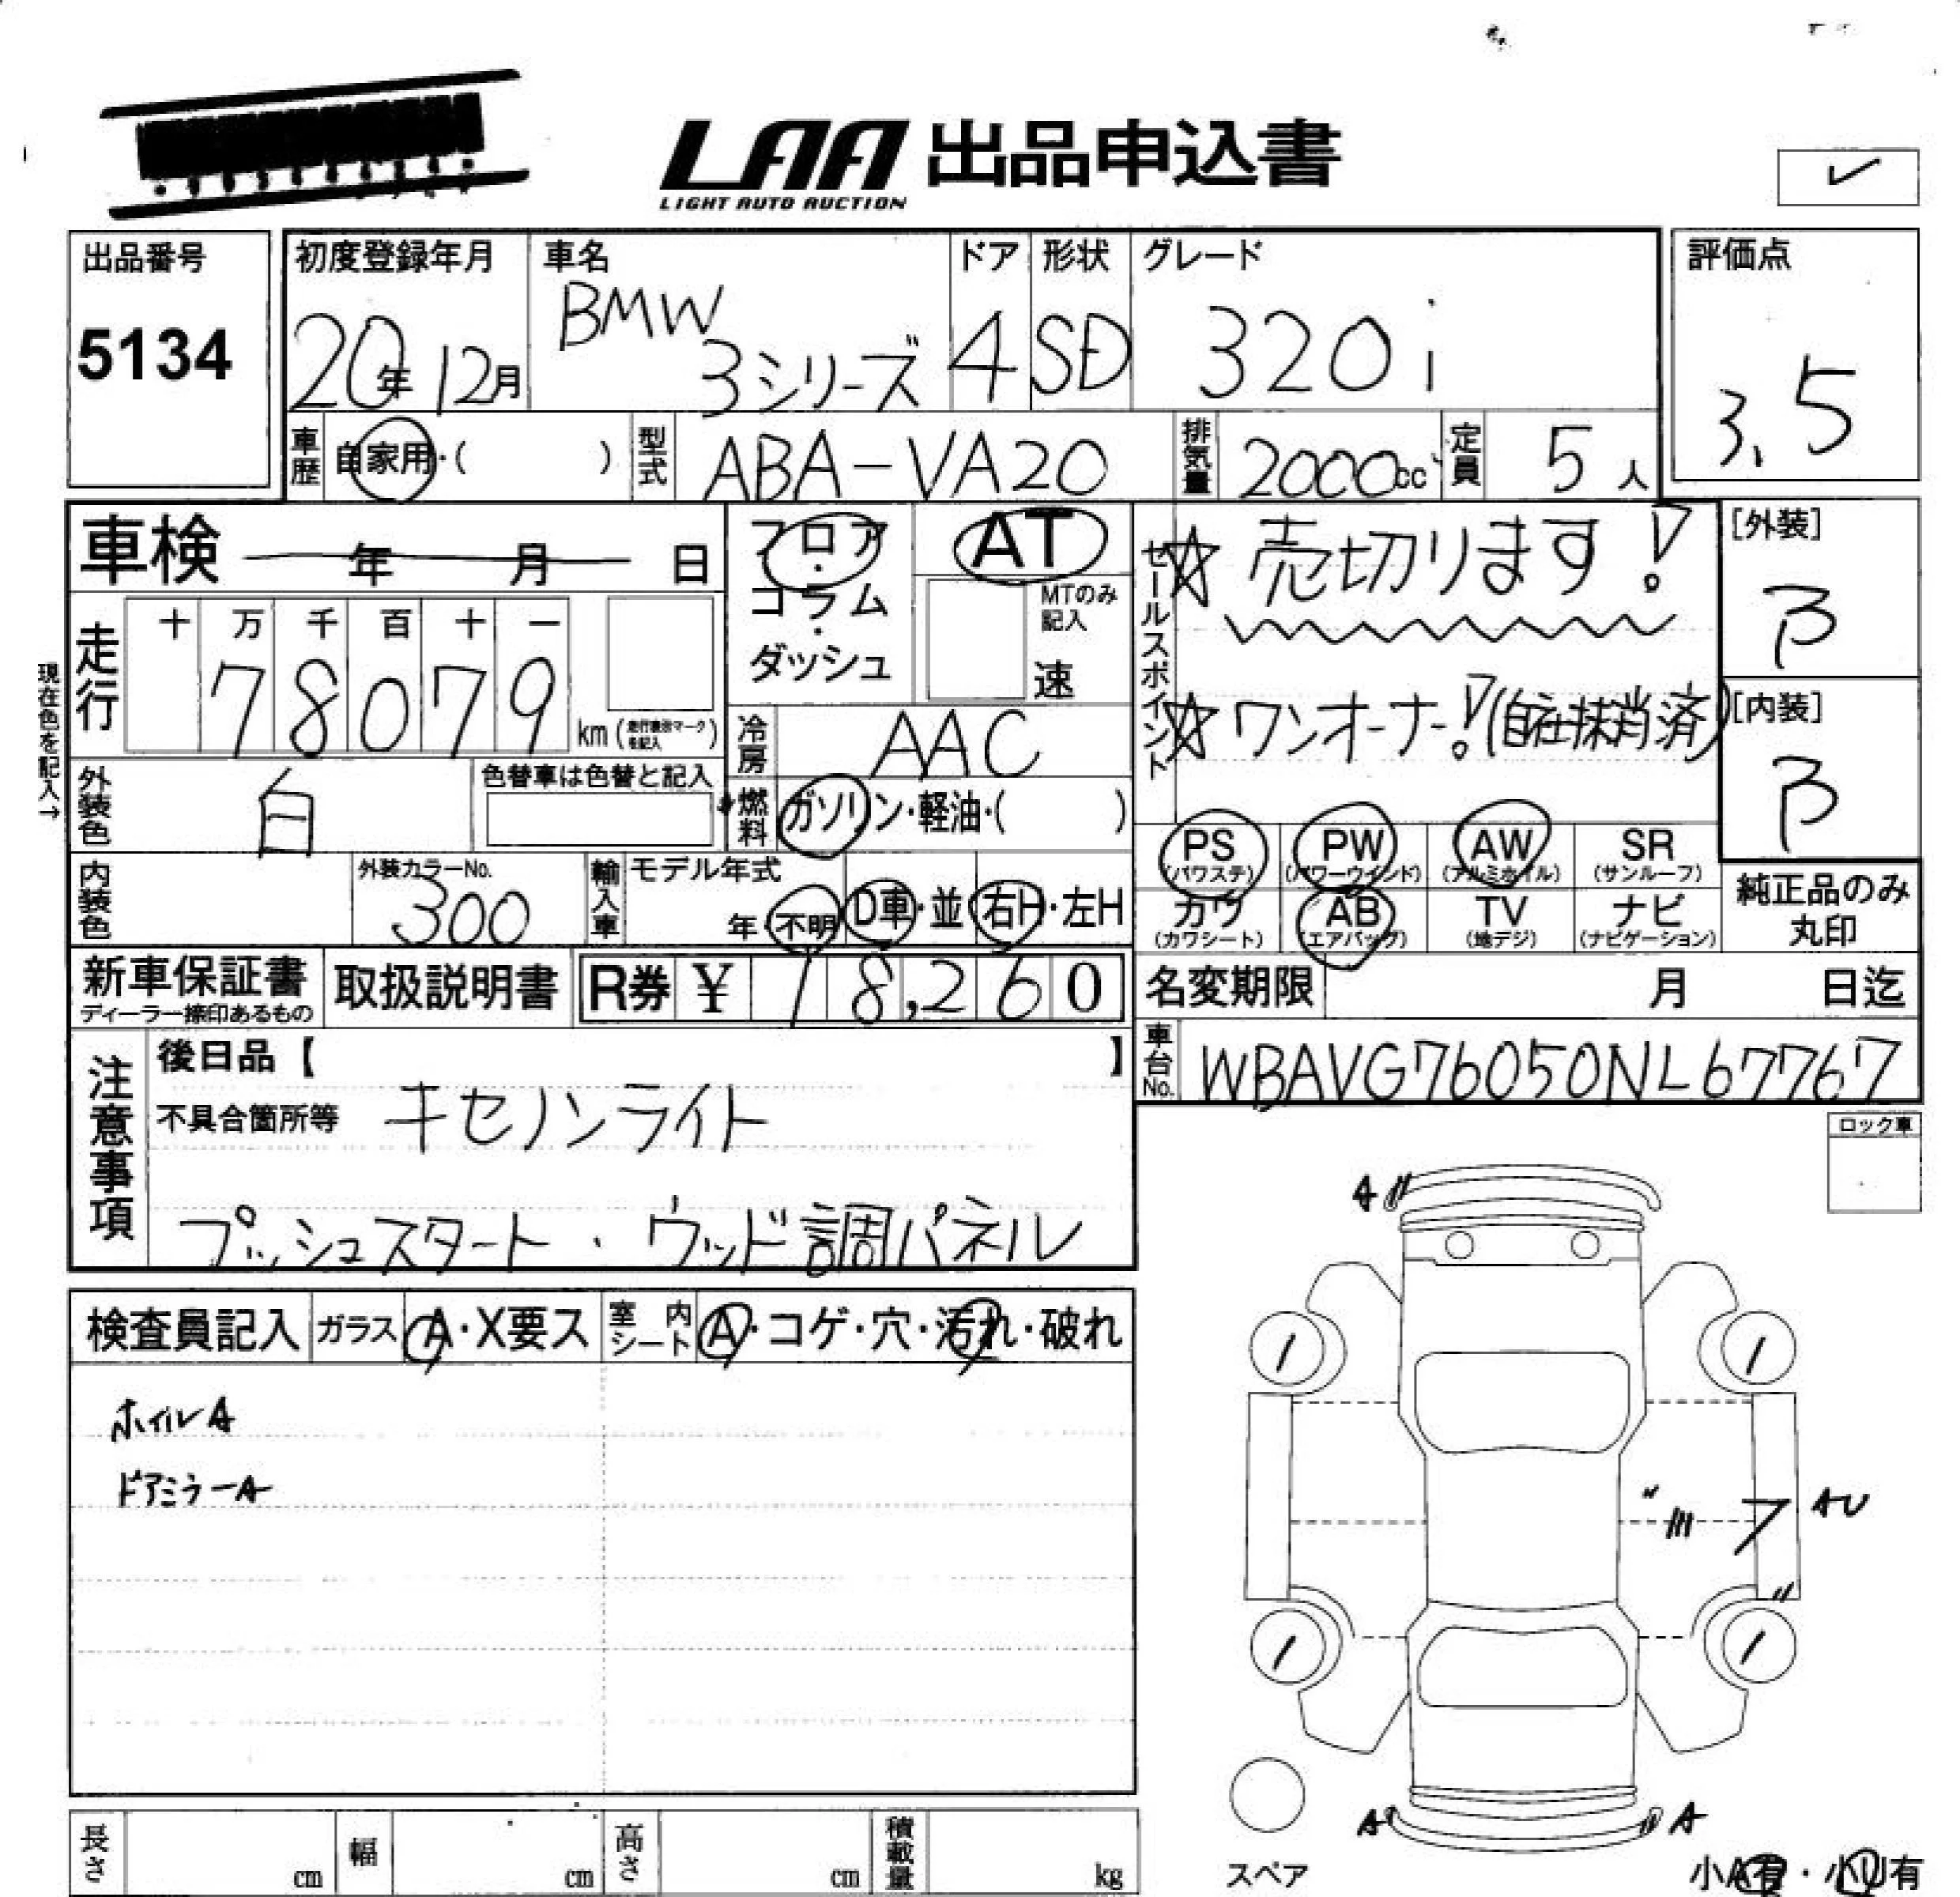 LAA 出品申込書
LIGHT AUTO AUCTION
出品番号
5134
初度登録年月
20年12月
車名
BMW
3シリーズ
ドア
4
形状
SD
グレード
320i
評価点
3.5
車歴
自家用・( )
型式
ABA-VA20
排気量
2000cc
定員
5人
車検 年 月 日
フロア・コラム・ダッシュ
AT
MTのみ記入
速
セールスポイント
☆売切ります!
☆ワンオーナー!(自社抹消済)
[外装]
B
[内装]
B
現在色を記入→
走行
十 万 千 百 十 一
78079
km(走行表示マークを記入)
冷房
AAC
外装色
白
色替車は色替と記入
燃料
ガソリン・軽油・( )
内装色
外装カラーNo.
300
輸入車
モデル年式
年・不明
D車・並
右H・左H
PS
(パワステ)
PW
(パワーウインド)
AW
(アルミホイル)
SR
(サンルーフ)
カワ
(カワシート)
AB
(エアバッグ)
TV
(地デジ)
ナビ
(ナビゲーション)
純正品のみ
丸印
新車保証書
ディーラー捺印あるもの
取扱説明書
R券 ¥ 18,260
名変期限 月 日迄
車台No.
WBAVG76050NL67767
注意事項
後日品【 】
不具合箇所等 キセノンライト
プッシュスタート・ウッド調パネル
ロック車
検査員記入
ガラス A・X要ス
室内シート A・コゲ・穴・汚れ・破れ
ホイルA
ドアミラーA
A
AU
A
A
長さ cm
幅 cm
高さ cm
積載量 kg
スペア
小A有・小U有